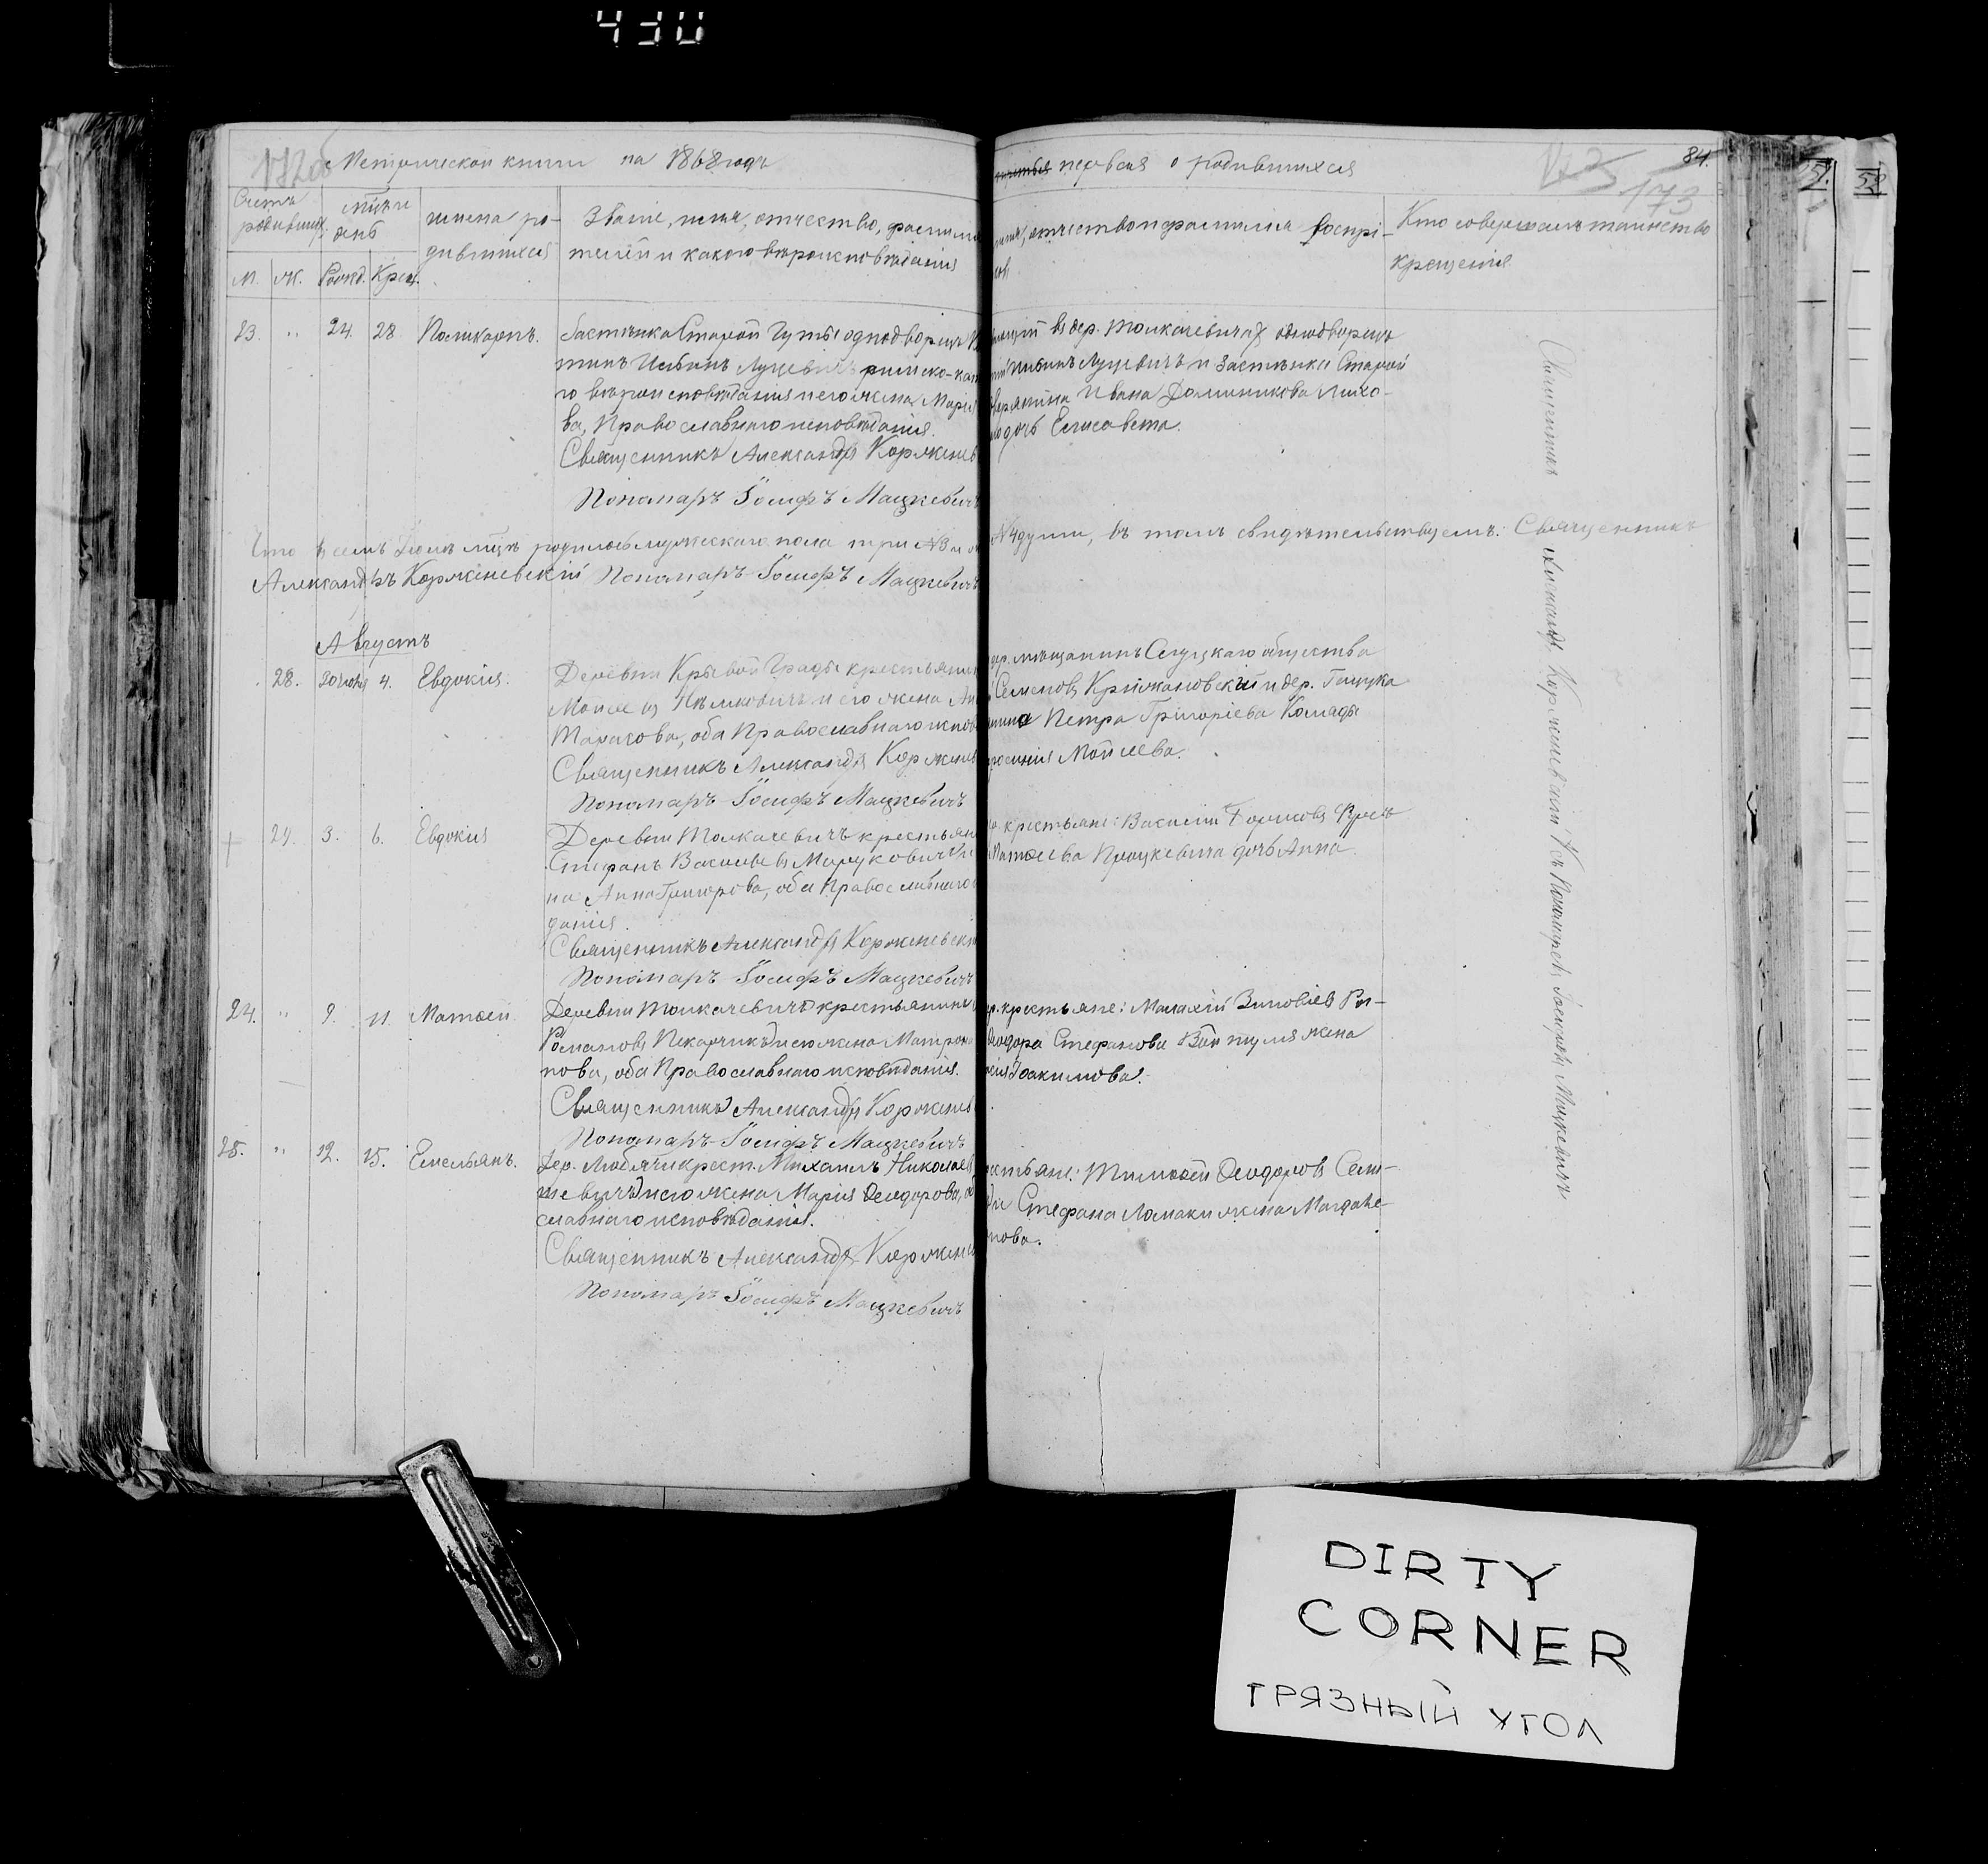 430
172об Метрической книги на 1868 годъ
Счетъ родившихся.
мѣсяцъ и день
имена родившихся
Званіе, имя, отчество, фамилія
телей и какого вѣроисповѣданія
М. Ж. Рожд. Крещ.
23. " 24. 28 Поликарпъ. Застѣнка Старой Гуты однодворецъ
тинъ Ильинъ Луцевичъ римско-кат
го вѣроисповѣданія и его жена Марія
ва, Православнаго исповѣданія.
Священникъ Александръ Корженев
Пономаръ Іосифъ Мацкевичъ
Что въ семъ Іюлѣ мцѣ родилось мужескаго пола три №3 и
Александръ Корженевскій Пономаръ Іосифъ Мацкевичъ
Августъ
28. 20 4. Евдокія. Деревни Кривой Гряды крестьянин
его жена
Тарасова, оба Православнаго испов
Священникъ Александръ Коржене
Пономаръ Іосифъ Мацкевичъ
29. 3. 6. Евдокія Деревни Толкачевичъ крестьян
Стефанъ Васильевъ
на Анна Григорова, оба Православнаго
данія.
Священникъ Александръ Корженевскі
Пономаръ Іосифъ Мацкевичъ
24. " 9. 11. Матѳей. Деревни Толкачевичъ крестьянинъ
Романовъ Пекарчикъ и его жена Матрона
пова, оба Православнаго исповѣданія.
Священникъ Александръ Коржене
Пономаръ Іосифъ Мацкевичъ
25. " 12. 15. Емельянъ. Дер. Любячи крест. Михаилъ Николаев
шевичъ и его жена Марія Ѳеодорова, об
славнаго исповѣданія.
Священникъ Александръ Коржене
Пономаръ Іосифъ Мацкевичъ
первая о родившихся
84.
173
имя, отчество и фамилія воспрі-
ков
Кто совершалъ таинство
крещенія
ающій въ дер. Толкачевичахъ однодворецъ
Ильинъ Луцевичъ и Застѣнка Старой
дворянина Ивана Доминикова Лихо-
дочь Елисавета.
№4 души, въ томъ свидѣтельствуемъ: Священникъ
дер. мѣщанинъ Слуцкаго общества
Семеновъ Крижановскій и дер. Гацука
нина Петра Григоріева Коляды
росинія Моисеева.
крестьяне: Василій Борисовъ
Матѳеева Процкевича дочь Анна.
р. крестьяне: Малахій Зиновіевъ Ро-
Ѳеодора Стефанова жена
сія Іоакимова.
естьяне: Тимоѳей Ѳеодоровъ Сели-
ди Стефана Ломаки жена Магдале-
нова.
Священникъ Александръ Корженевскій съ Пономаремъ Іосифомъ Мацкевичемъ
52
DIRTY
CORNER
ГРЯЗНЫЙ УГОЛ